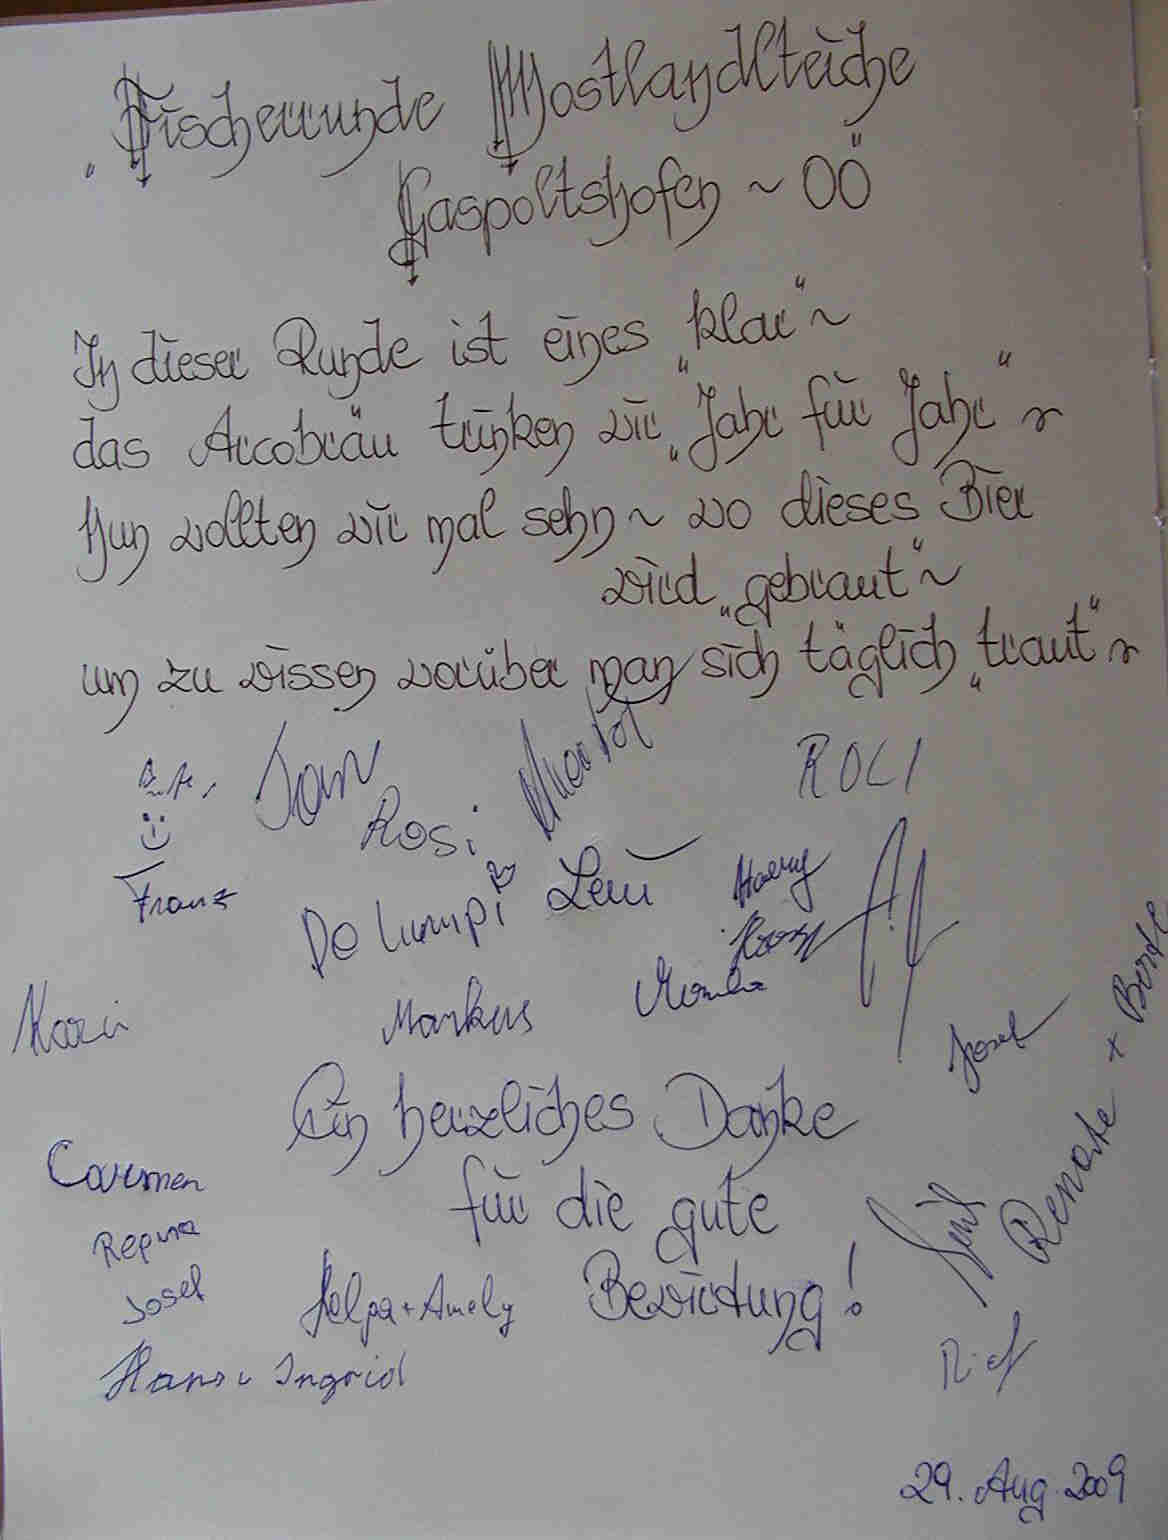 "Fischerrunde Mostlandlteiche
Gaspoltshofen ~ OÖ"
In dieser Runde ist eines „klar" ~
das Arcobräu trinken wir „Jahr für Jahr" ~
Nun wollten wir mal sehn ~ wo dieses Bier
wird „gebraut" ~
um zu wissen worüber man sich täglich „traut" ~
ROLI
Rosi
Franz
De Lumpi
Harry
Markus
Josef
Renate +
Ein herzliches Danke
für die gute
Bewirtung!
Carmen
Regina
Josef
Helga + Amely
Hans u Ingrid
29. Aug. 2009